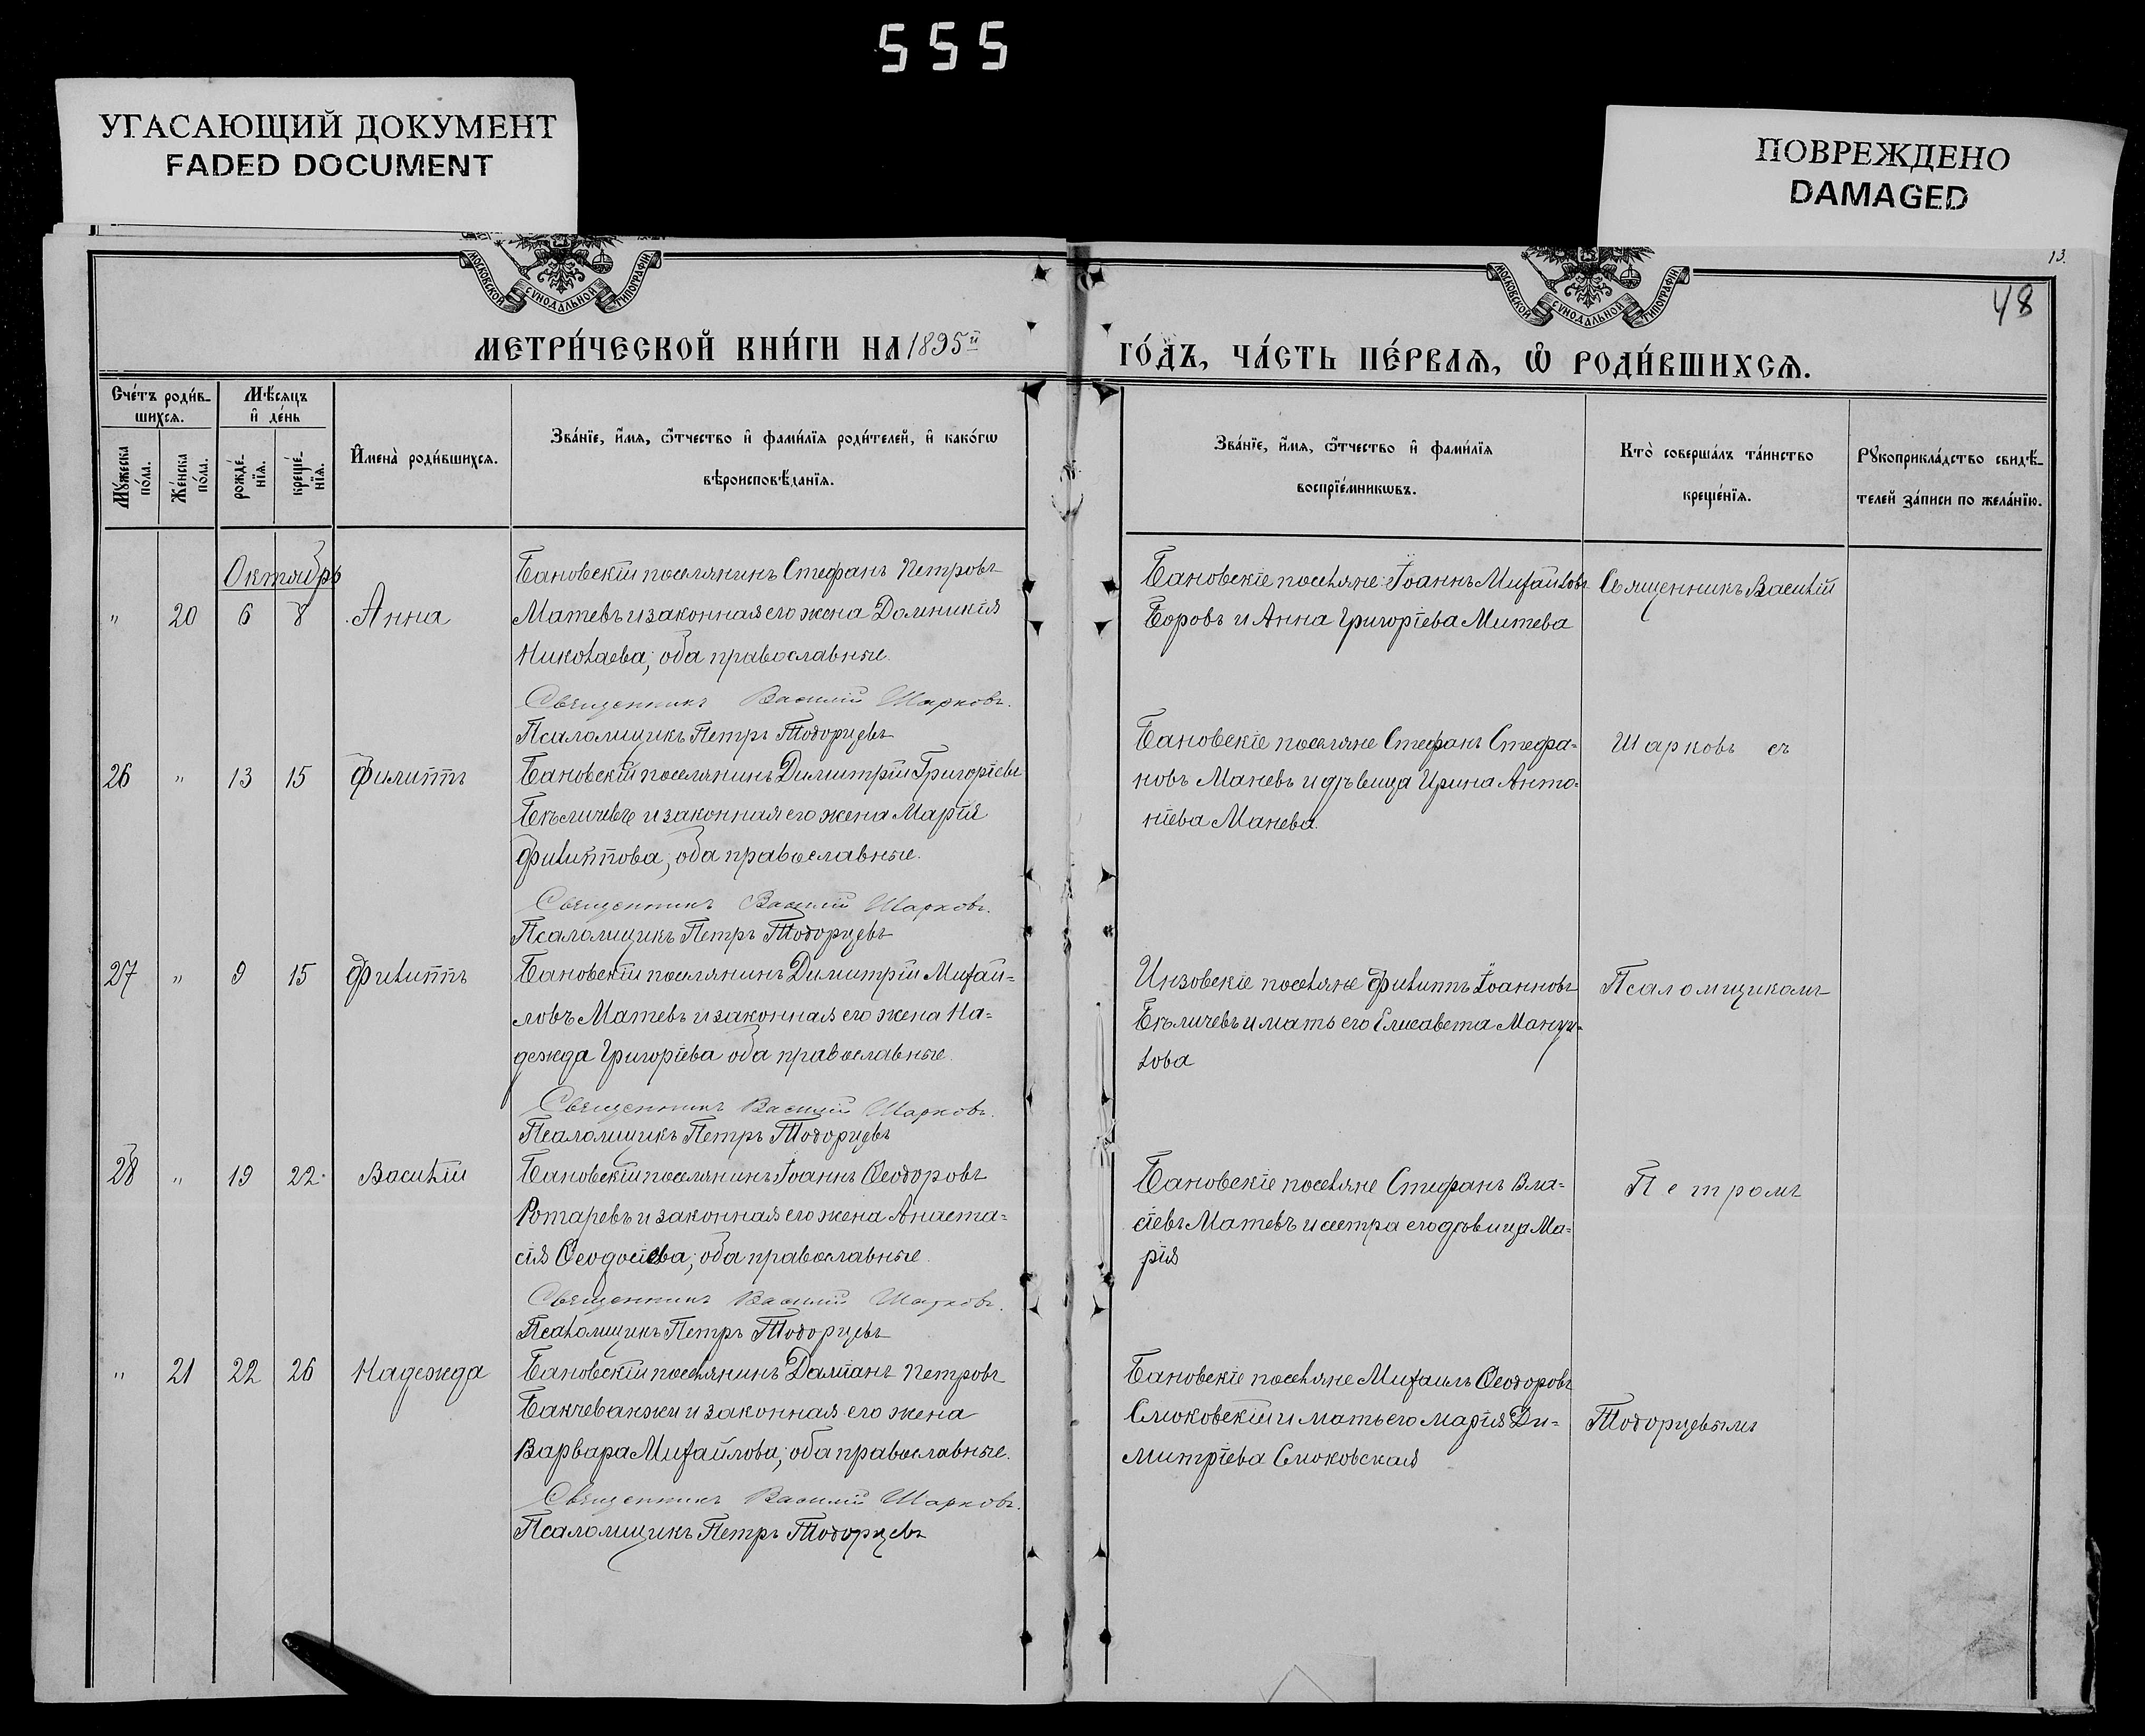 555
УГАСАЮЩИЙ ДОКУМЕНТ
FADED DOCUMENT
ПОВРЕЖДЕНО
DAMAGED
МОСКОВСКОЙ СѴНОДАЛЬНОЙ ТИПОГРАФІИ
МОСКОВСКОЙ СѴНОДАЛЬНОЙ ТИПОГРАФІИ
13.
48
МЕТРИ́ЧЕСКОЙ КНИ́ГИ НА 1895й
ГО́ДЪ, ЧА́СТЬ ПЕ́РВАѦ, Ѡ҆ РОДИ́ВШИХСѦ.
Сче́тъ роди́в-
шихсѧ.
Мѣ́сяцъ
и҆ де́нь
Мꙋ́жеска
по́ла.
Же́нска
по́ла.
рожде́-
нїѧ.
креще́-
нїѧ.
И҆мена̀ роди́вшихсѧ.
Зва́нїе, и҆́мѧ, ѻ҆́тчество и҆ фами́лїѧ роди́телей, и҆ како́гѡ
вѣроисповѣ́данїѧ.
Зва́нїе, и҆́мѧ, ѻ҆́тчество и҆ фами́лїѧ
воспрїе́мникѡвъ.
Кто̀ соверша́лъ та́инство
креще́нїѧ.
Рꙋкоприкла́дство свидѣ́-
телей за́писи по жела́нїю.
Октябрь
" 20 6 8 Анна
Бановскій поселянинъ Стефанъ Петровъ
Матевъ и законная его жена Домникія
Николаева; оба православные.
Священникъ Василій Шарковъ.
Псаломщикъ Петръ Тодорцевъ
Бановскіе поселяне: Іоаннъ Михайловъ
Боровъ и Анна Григоріева Митева
Священникъ Василій
26 " 13 15 Филиппъ
Бановскій поселянинъ Димитрій Григоріевъ
Бкъличевъ и законная его жена Марія
Филиппова; оба православные.
Священникъ Василій Шарковъ.
Псаломщикъ Петръ Тодорцевъ
Бановскіе поселяне Стефанъ Стефа-
новъ Маневъ и дѣвица Ирина Анто-
ніева Манева.
Шарковъ съ
27 " 9 15 Филиппъ
Бановскій поселянинъ Димитрій Михай-
ловъ Матевъ и законная его жена На-
дежда Григоріева оба православные.
Священникъ Василій Шарковъ.
Псаломщикъ Петръ Тодорцевъ
Инзовскіе поселяне Филиппъ Іоанновъ
Бкъличевъ и мать его Елисавета Ману-
лова
Псаломщикомъ
28 " 19 22 Василій
Бановскій поселянинъ Іоаннъ Ѳеодоровъ
Ротаревъ и законная его жена Анаста-
сія Ѳеодосіева; оба православные.
Священникъ Василій Шарковъ.
Псаломщикъ Петръ Тодорцевъ
Бановскіе поселяне Стефанъ Вла-
сіевъ Матевъ и сестра его дѣвица Ма-
рія
Петромъ
" 21 22 26 Надежда
Бановскій поселянинъ Даміанъ Петровъ
Бакчеванжи и законная его жена
Варвара Михайлова; оба православные.
Священникъ Василій Шарковъ.
Псаломщикъ Петръ Тодорцевъ
Бановскіе поселяне Михаилъ Ѳеодоровъ
Смоковскій и мать его Марія Ди-
митріева Смоковская
Тодорцевымъ